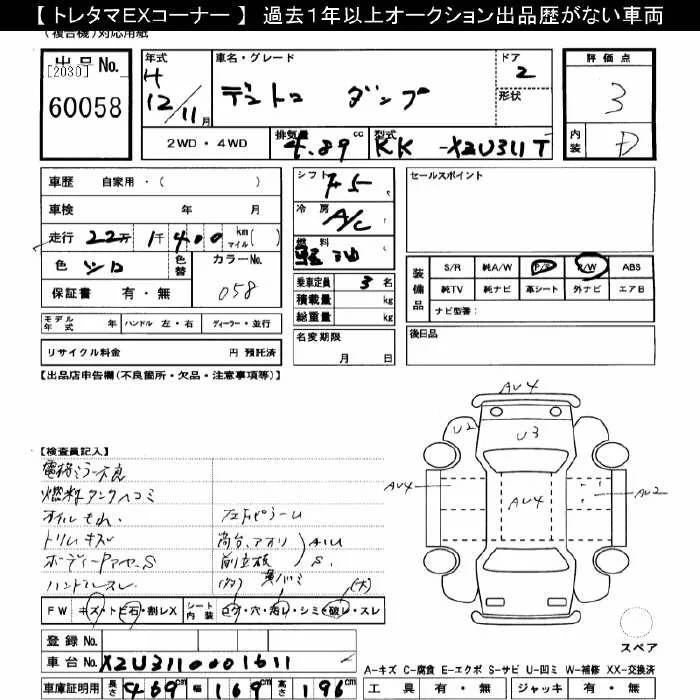 【 トレタマEXコーナー 】 過去１年以上オークション出品歴がない車両
(複合機)対応用紙
出品No. [2030] 60058
年式 H 12/11月
車名・グレード デュトロ ダンプ
ドア 2
形状
評価点 3
内装 D
2WD・4WD
排気量 4.89 cc
型式 KK-XZU311T
車歴 自家用・( )
車検 年 月
走行 22万 1千 400 km マイル( )
色 シロ 色替 カラーNo. 058
保証書 有・無
シフト F5
冷房 A/C
燃料 軽油
セールスポイント
乗車定員 3 名
積載量 kg
総重量 kg
装備品 S/R 純A/W P/S P/W ABS
純TV 純ナビ 革シート 外ナビ エアB
ナビ型番:
モデル年式 年 ハンドル 左・右 ディーラー・並行
名変期限 月 日
後日品
リサイクル料金 円 預託済
【出品店申告欄(不良箇所・欠品・注意事項等)】
AU4
U2 U3
AU4 AU4 AU2
【検査員記入】
電格ミラー不良
燃料タンクヘコミ
オイルもれ.
トリムキズ
ボディーアヤ S
ハンドルスレ
フェンダ ピラーU
荷台、アオリ AUU
前立板 S.
(多) (大)
FW キズ・トビ石・割レX シート内装 コゲ・穴・汚レ・シミ・破レ・スレ
登録No.
車台No. XZU3110001611
車庫証明用 長さ 469cm 幅 169cm 高さ 196cm
スペア
A-キズ C-腐食 E-エクボ S-サビ U-凹ミ W-補修 XX-交換済
工具 有・無 ジャッキ 有・無